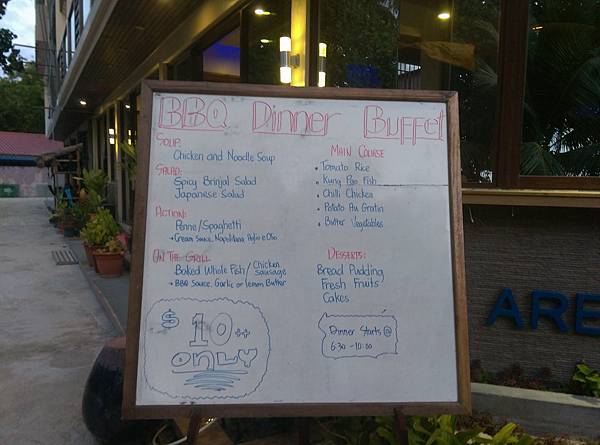 BBQ Dinner Buffet
SOUP:
Chicken and Noodle Soup
SALAD:
Spicy Brinjal Salad
Japanese Salad
ACTION:
Penne/Spaghetti
→ Cream Sauce, Napolitana, Aglio e Olio
ON THE GRILL
Baked Whole Fish / Chicken Sausage
→ BBQ Sauce, Garlic or lemon Butter
$ 10++
ONLY
MAIN COURSE
• Tomato Rice
• Kung Pao Fish
• Chilli Chicken
• Potato Au Gratin
• Butter Vegetables
DESSERTS:
Bread Pudding
Fresh Fruits
Cakes
Dinner Starts @
6:30 - 10:00
ARE